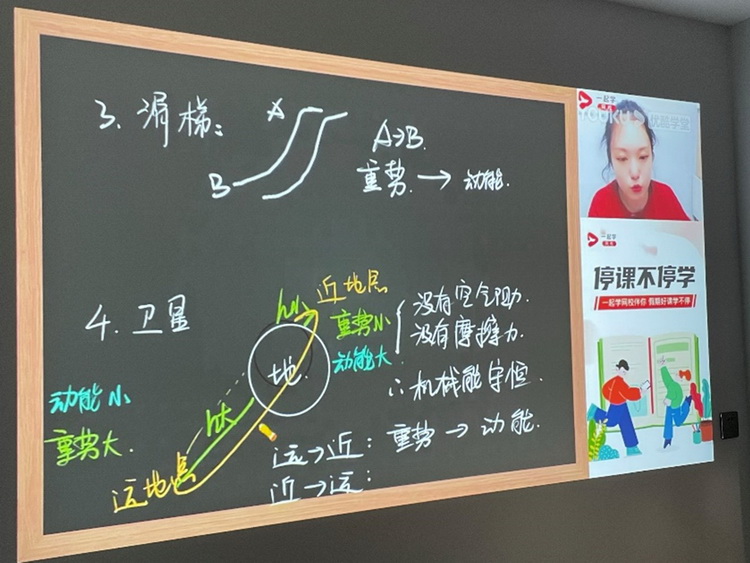 3、滑梯:
A
B
A→B.
重势. → 动能.
4. 卫星
h小
近地点
重势小
动能大
没有空气阻力.
没有摩擦力
∴机械能守恒.
地.
动能小
重势大.
h大
远地点
远→近: 重势 → 动能.
近→远:
一起学
网校
YOUKU 优酷学堂
一起学
网校
停课不停学
一起学网校伴你 假期好课学不停